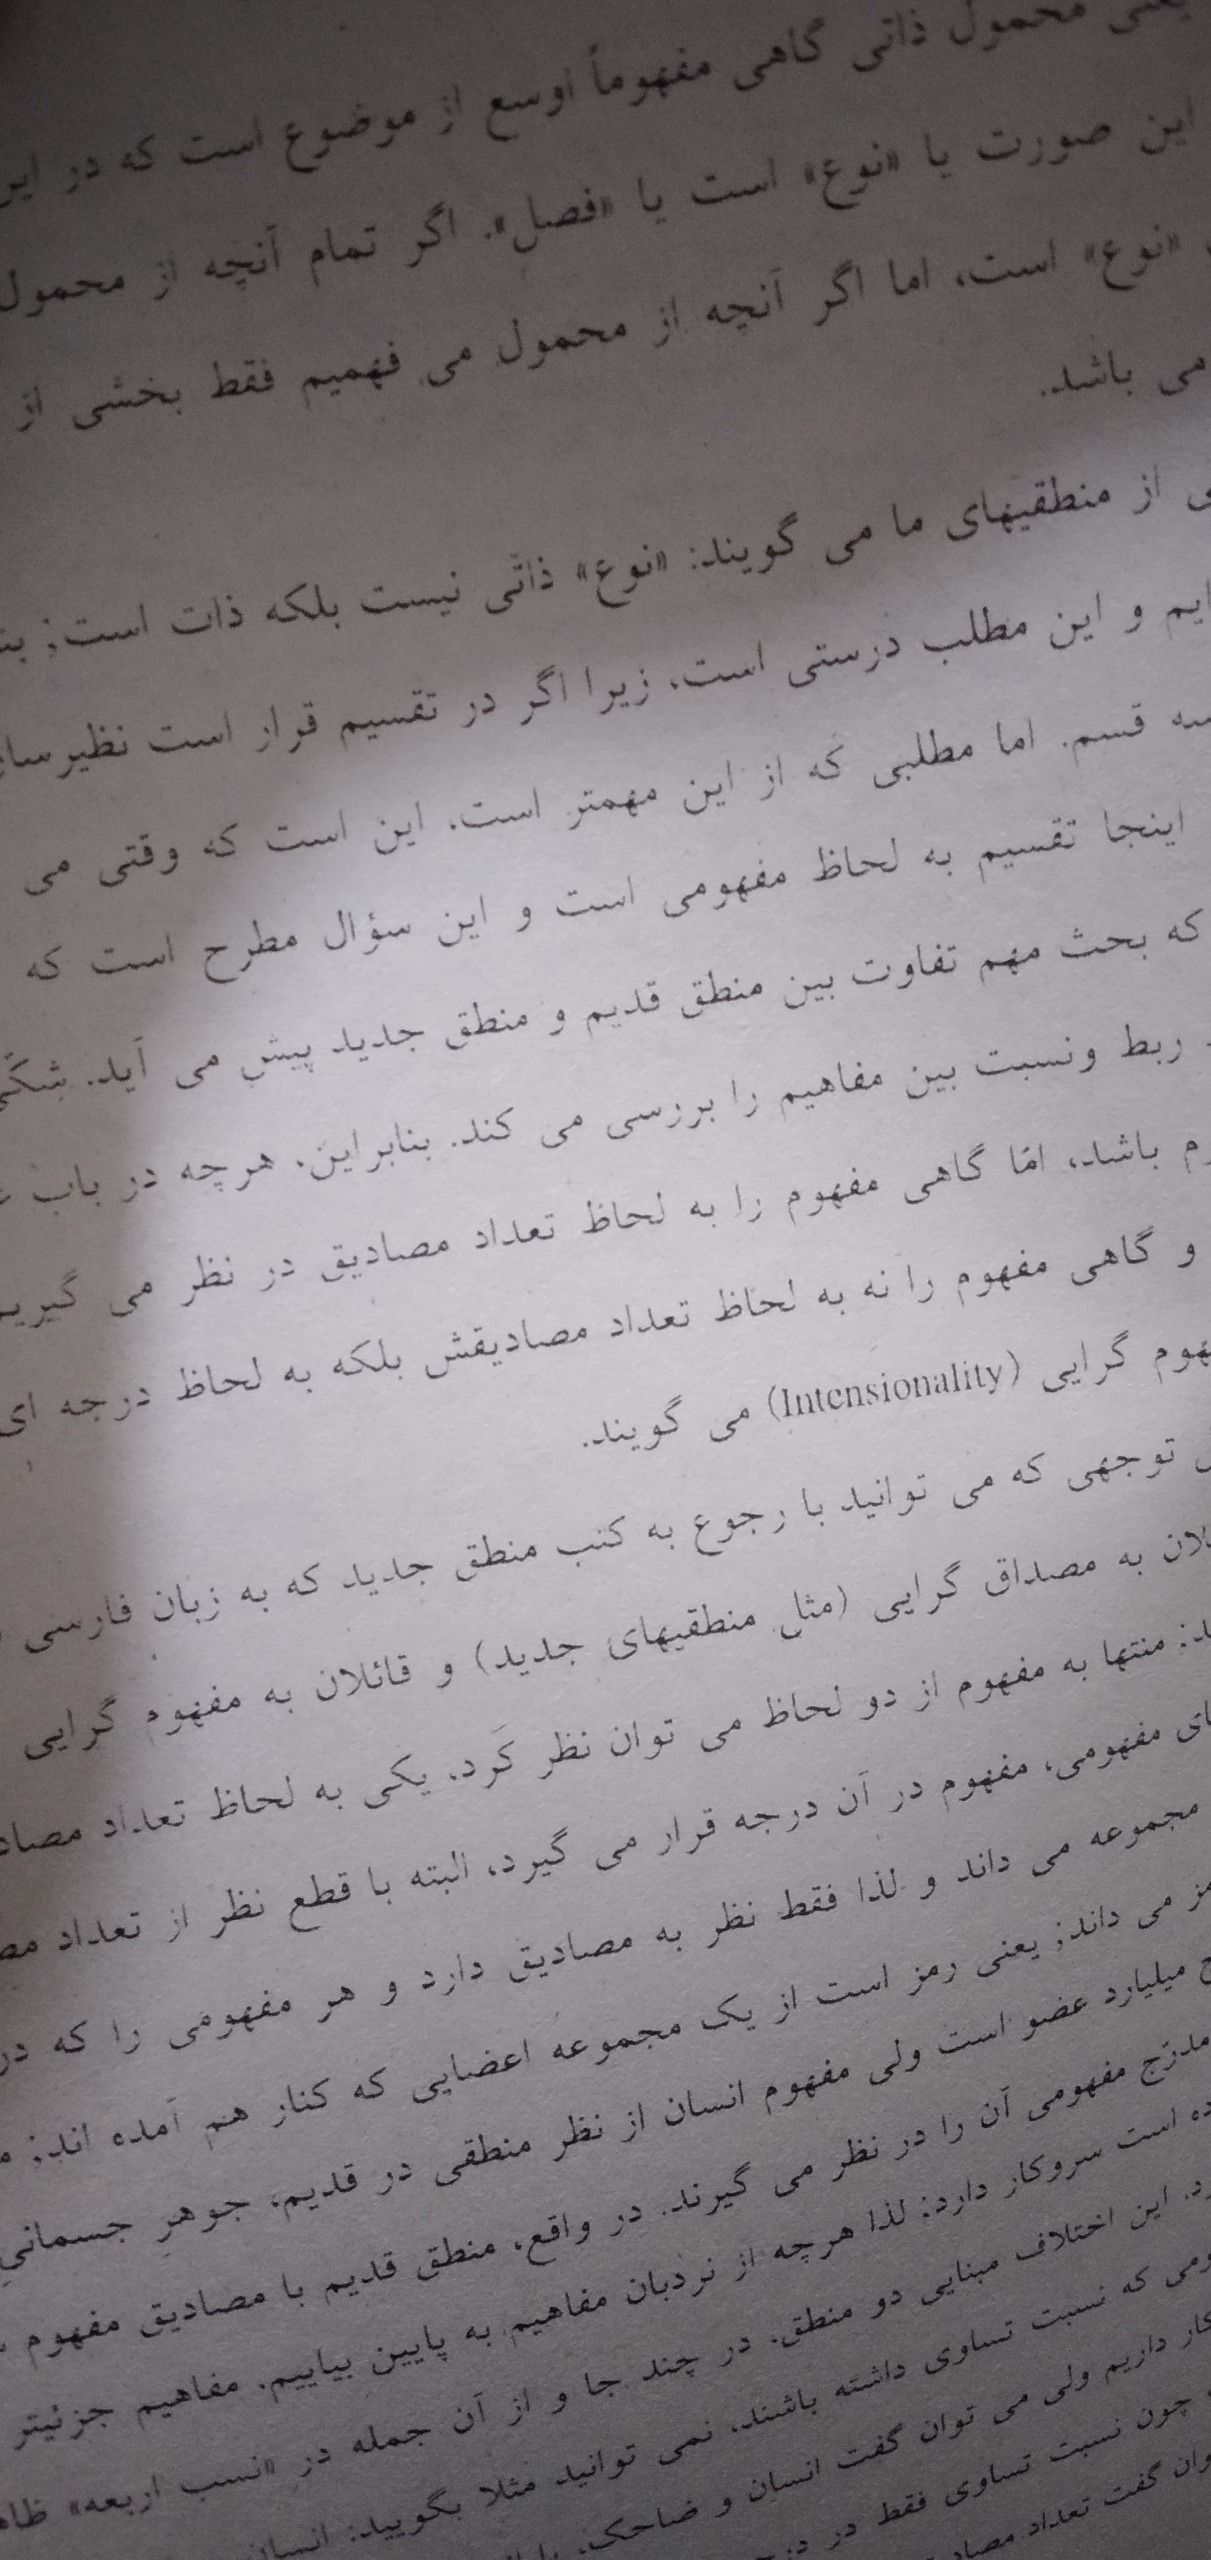 یعنی محمول ذاتی گاهی مفهوماً اوسع از موضوع است که در این
این صورت یا «نوع» است یا «فصل». اگر تمام آنچه از محمول
«نوع» است، اما اگر آنچه از محمول می فهمیم فقط بخشی از
می باشد.
از منطقیهای ما می گویند: «نوع» ذاتی نیست بلکه ذات است;
و این مطلب درستی است، زیرا اگر در تقسیم قرار است نظیر
سه قسم. اما مطلبی که از این مهمتر است، این است که وقتی می
اینجا تقسیم به لحاظ مفهومی است و این سؤال مطرح است که
که بحث مهم تفاوت بین منطق قدیم و منطق جدید پیش می آید.
ربط ونسبت بین مفاهیم را بررسی می کند. بنابراین، هرچه در باب
باشد، امّا گاهی مفهوم را به لحاظ تعداد مصادیق در نظر می
و گاهی مفهوم را نه به لحاظ تعداد مصادیقش بلکه به لحاظ درجه ای
گرایی (Intensionality) می گویند.
توجهی که می توانید با رجوع به کتب منطق جدید که به زبان فارسی
به مصداق گرایی (مثل منطقیهای جدید) و قائلان به مفهوم گرایی
منتها به مفهوم از دو لحاظ می توان نظر کرد، یکی به لحاظ تعداد
مفهومی، مفهوم در آن درجه قرار می گیرد، البته با قطع نظر از تعداد
مجموعه می داند و لذا فقط نظر به مصادیق دارد و هر مفهومی را که در
می داند; یعنی رمز است از یک مجموعه اعضایی که کنار هم آمده اند;
میلیارد عضو است ولی مفهوم انسان از نظر منطقی در قدیم، جوهرِ جسمانیِ
مدرّج مفهومی آن را در نظر می گیرند. در واقع، منطق قدیم با مصادیق مفهوم
است سروکار دارد: لذا هرچه از نردبان مفاهیم به پایین بیاییم، مفاهیم جزئیتر
این اختلاف مبنایی دو منطق، در چند جا و از آن جمله در «نسب اربعه»
که نسبت تساوی داشته باشند، نمی توانید مثلا بگویید: انسان
داریم ولی می توان گفت انسان و ضاحک،
چون نسبت تساوی فقط در
گفت تعداد